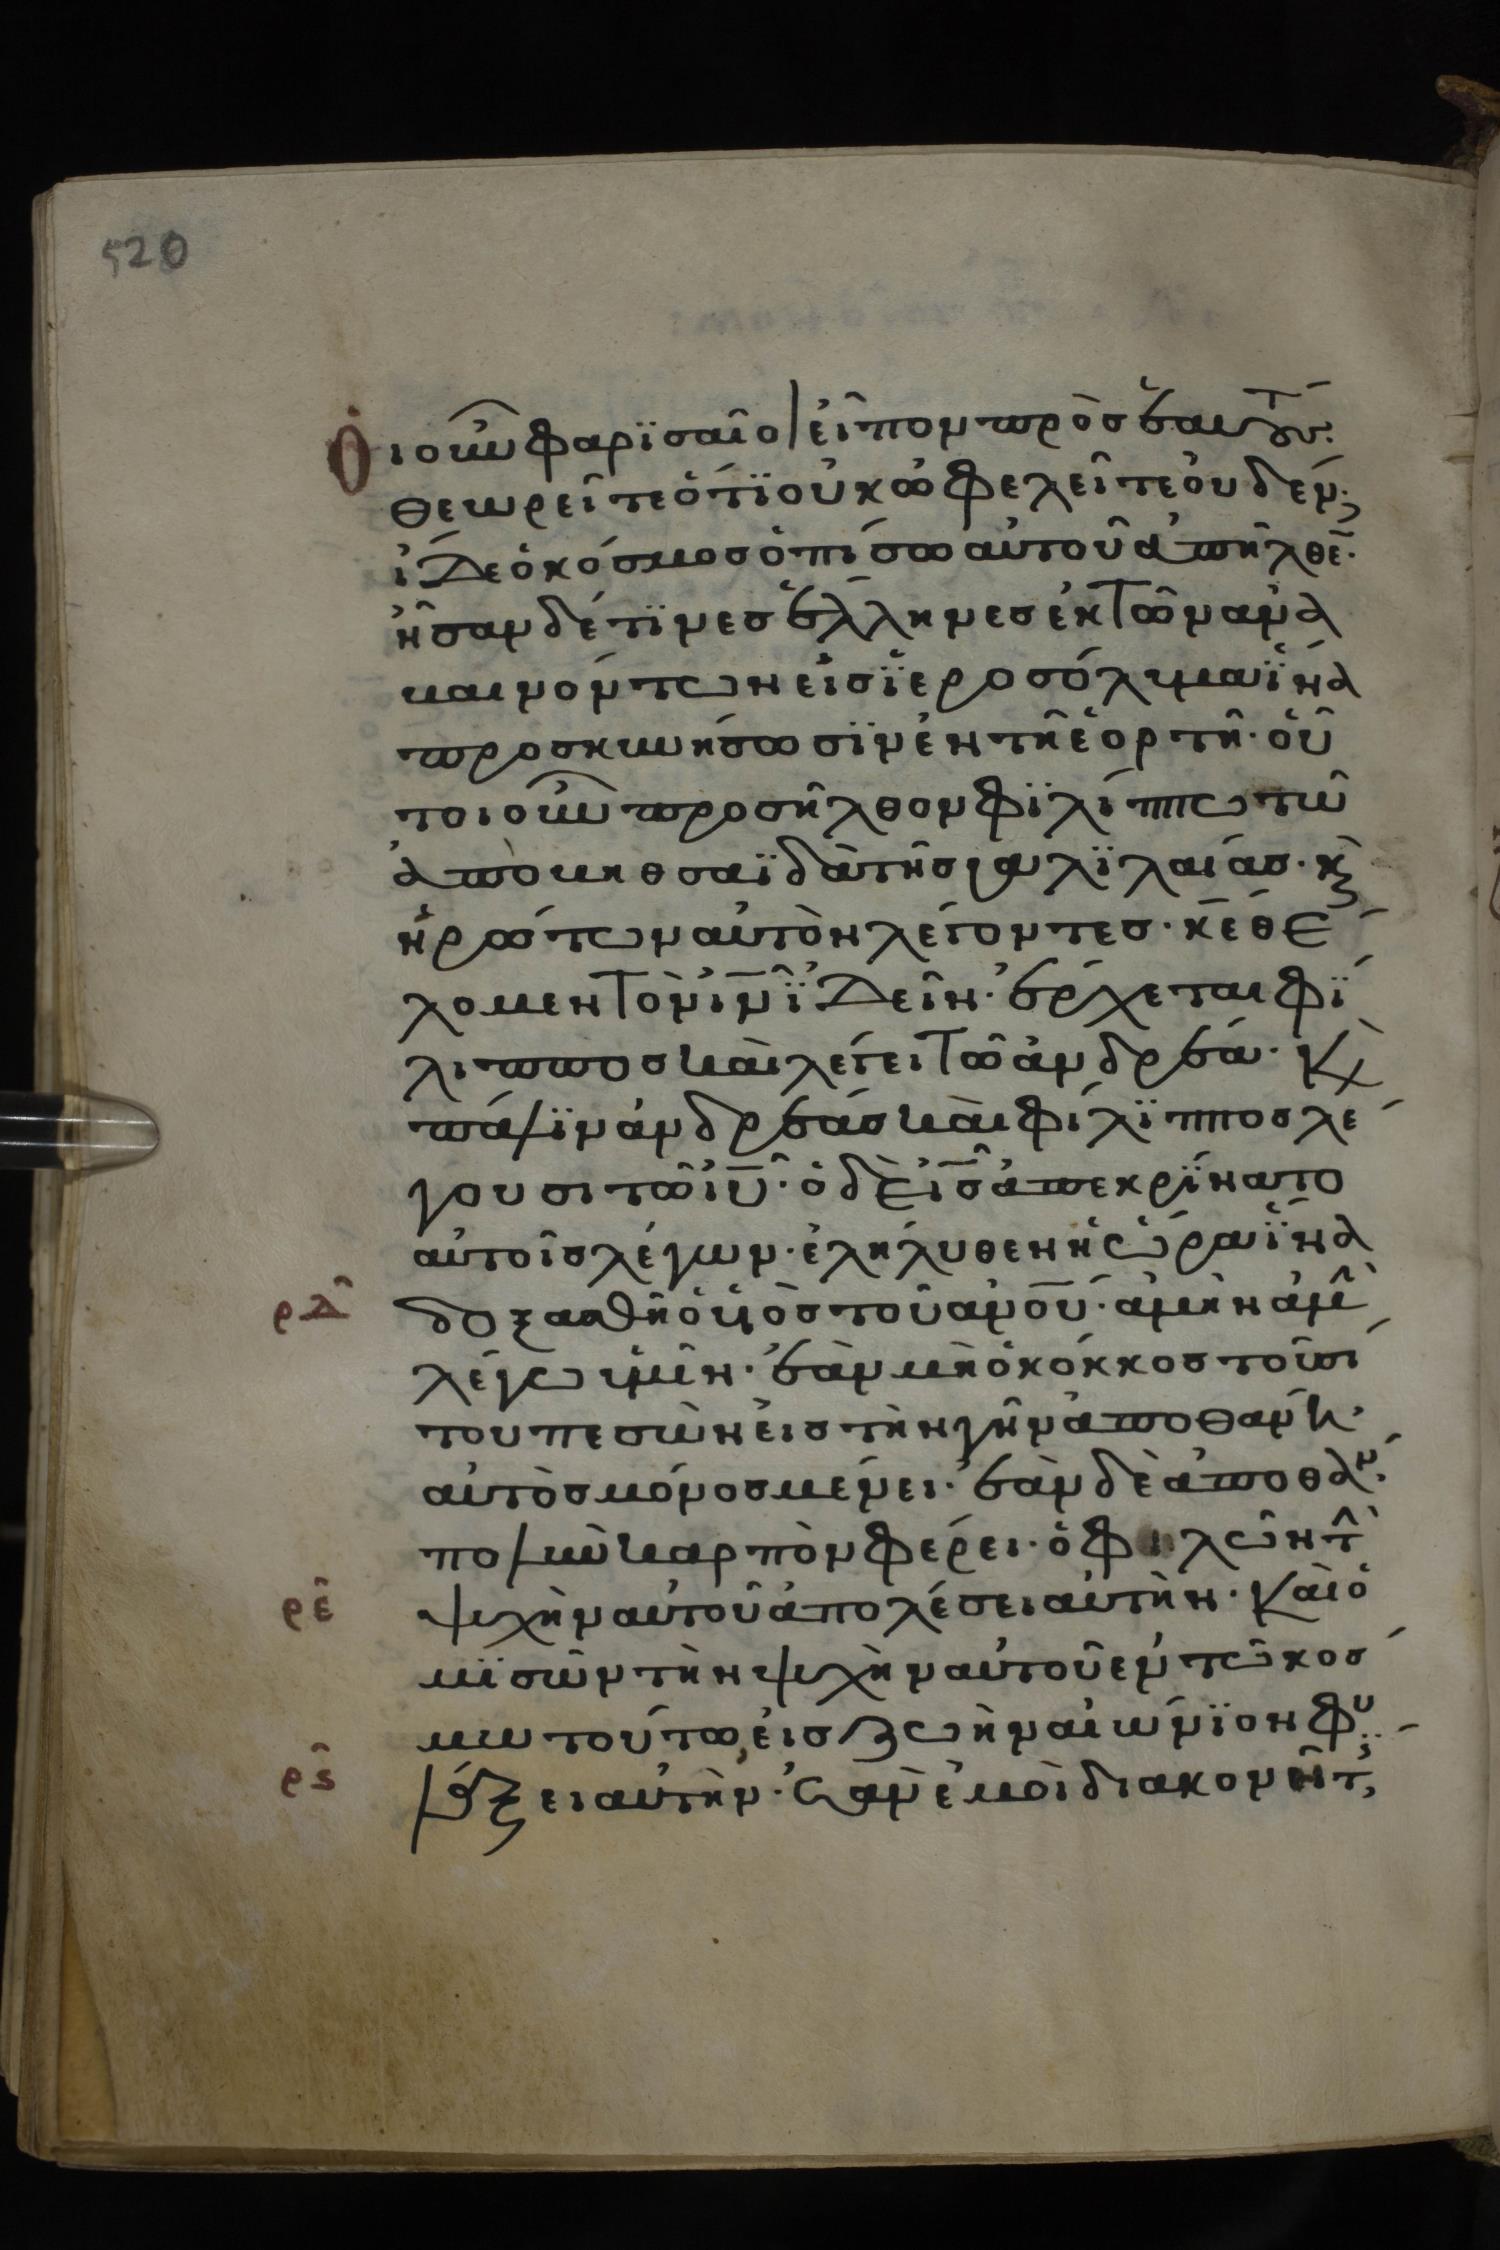 520
Ὁι οὖν φαρϊσαῖοι εἶπον πρὸς ἑαυτούς·
θεωρεῖτε ὅτϊ οὐκ ὠφελεῖτε οὐδέν;
ἴδε ὁ κόσμος ὀπίσω αὐτοῦ ἀπῆλθε̄·
ἦσαν δέ τϊνες ἕλληνες ἐκ τῶν ἀνα
βαινόντων εἰς ϊεροσόλυμα ἵ̈να
προσκυνήσωσϊν ἐν τῆ ἑορτῆ· οὗ
τοι οὖν προσῆλθον φϊλίππω τῶ
ἀπὸ βηθσαϊδὰ τῆς γαλϊλαίας· κ̀
ἠρώτων αὐτὸν λέγοντες· κ̅ε̅ θέ
λομεν τὸν ι̅ν̅ ϊδεῖν· ἔρχεται φί̈
λιππος καὶ λέγει τῶ ἀνδρέα· κ̀
πάλϊν ἀνδρέας καὶ φίλϊππος λέ
γουσι τῶ ι̅υ̅· ὁ δὲ ι̅ς̅ ἀπεκρίνατο
αὐτοῖς λέγων· ἐλήλυθεν ἡ ὥρα ἵ̈να
ρλ̂ δοξασθῆ ὁ υἱὸς τοῦ α̅ν̅ο̅υ̅· ἀμὴν ἀμὴ̅
λέγω ὑμῖν· ἐὰν μὴ ὁ κόκκος τοῦ σί
του πεσὼν εἰς τὴν γῆν ἀποθάνη·
αὐτὸς μόνος μένει· ἐὰν δὲ ἀποθάν·
πολὺν καρπὸν φέρει· ὁ φιλῶν τ̀
ρε̂ ψυχὴν αὐτοῦ ἀπολέσει αὐτὴν· καὶ ὁ
μϊσῶν τὴν ψυχὴν αὐτοῦ ἐν τῶ κόσ
μω τούτω, εἰς ζωὴν αἰώνϊον φυ
ρς̂ λάξει αὐτὴν· ἐὰν ἐμοὶ διακονῆ τ,